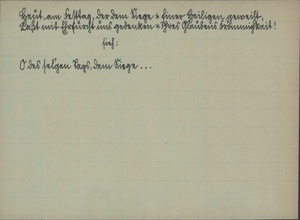 Heut, am Festtag, der dem Siege Einer Heiligen geweiht,
Laßt mit Ehrfurcht uns gedenken Ihres Glaubens Frömmigkeit!
sieh:
O des sel'gen Tags, dem Siege ...